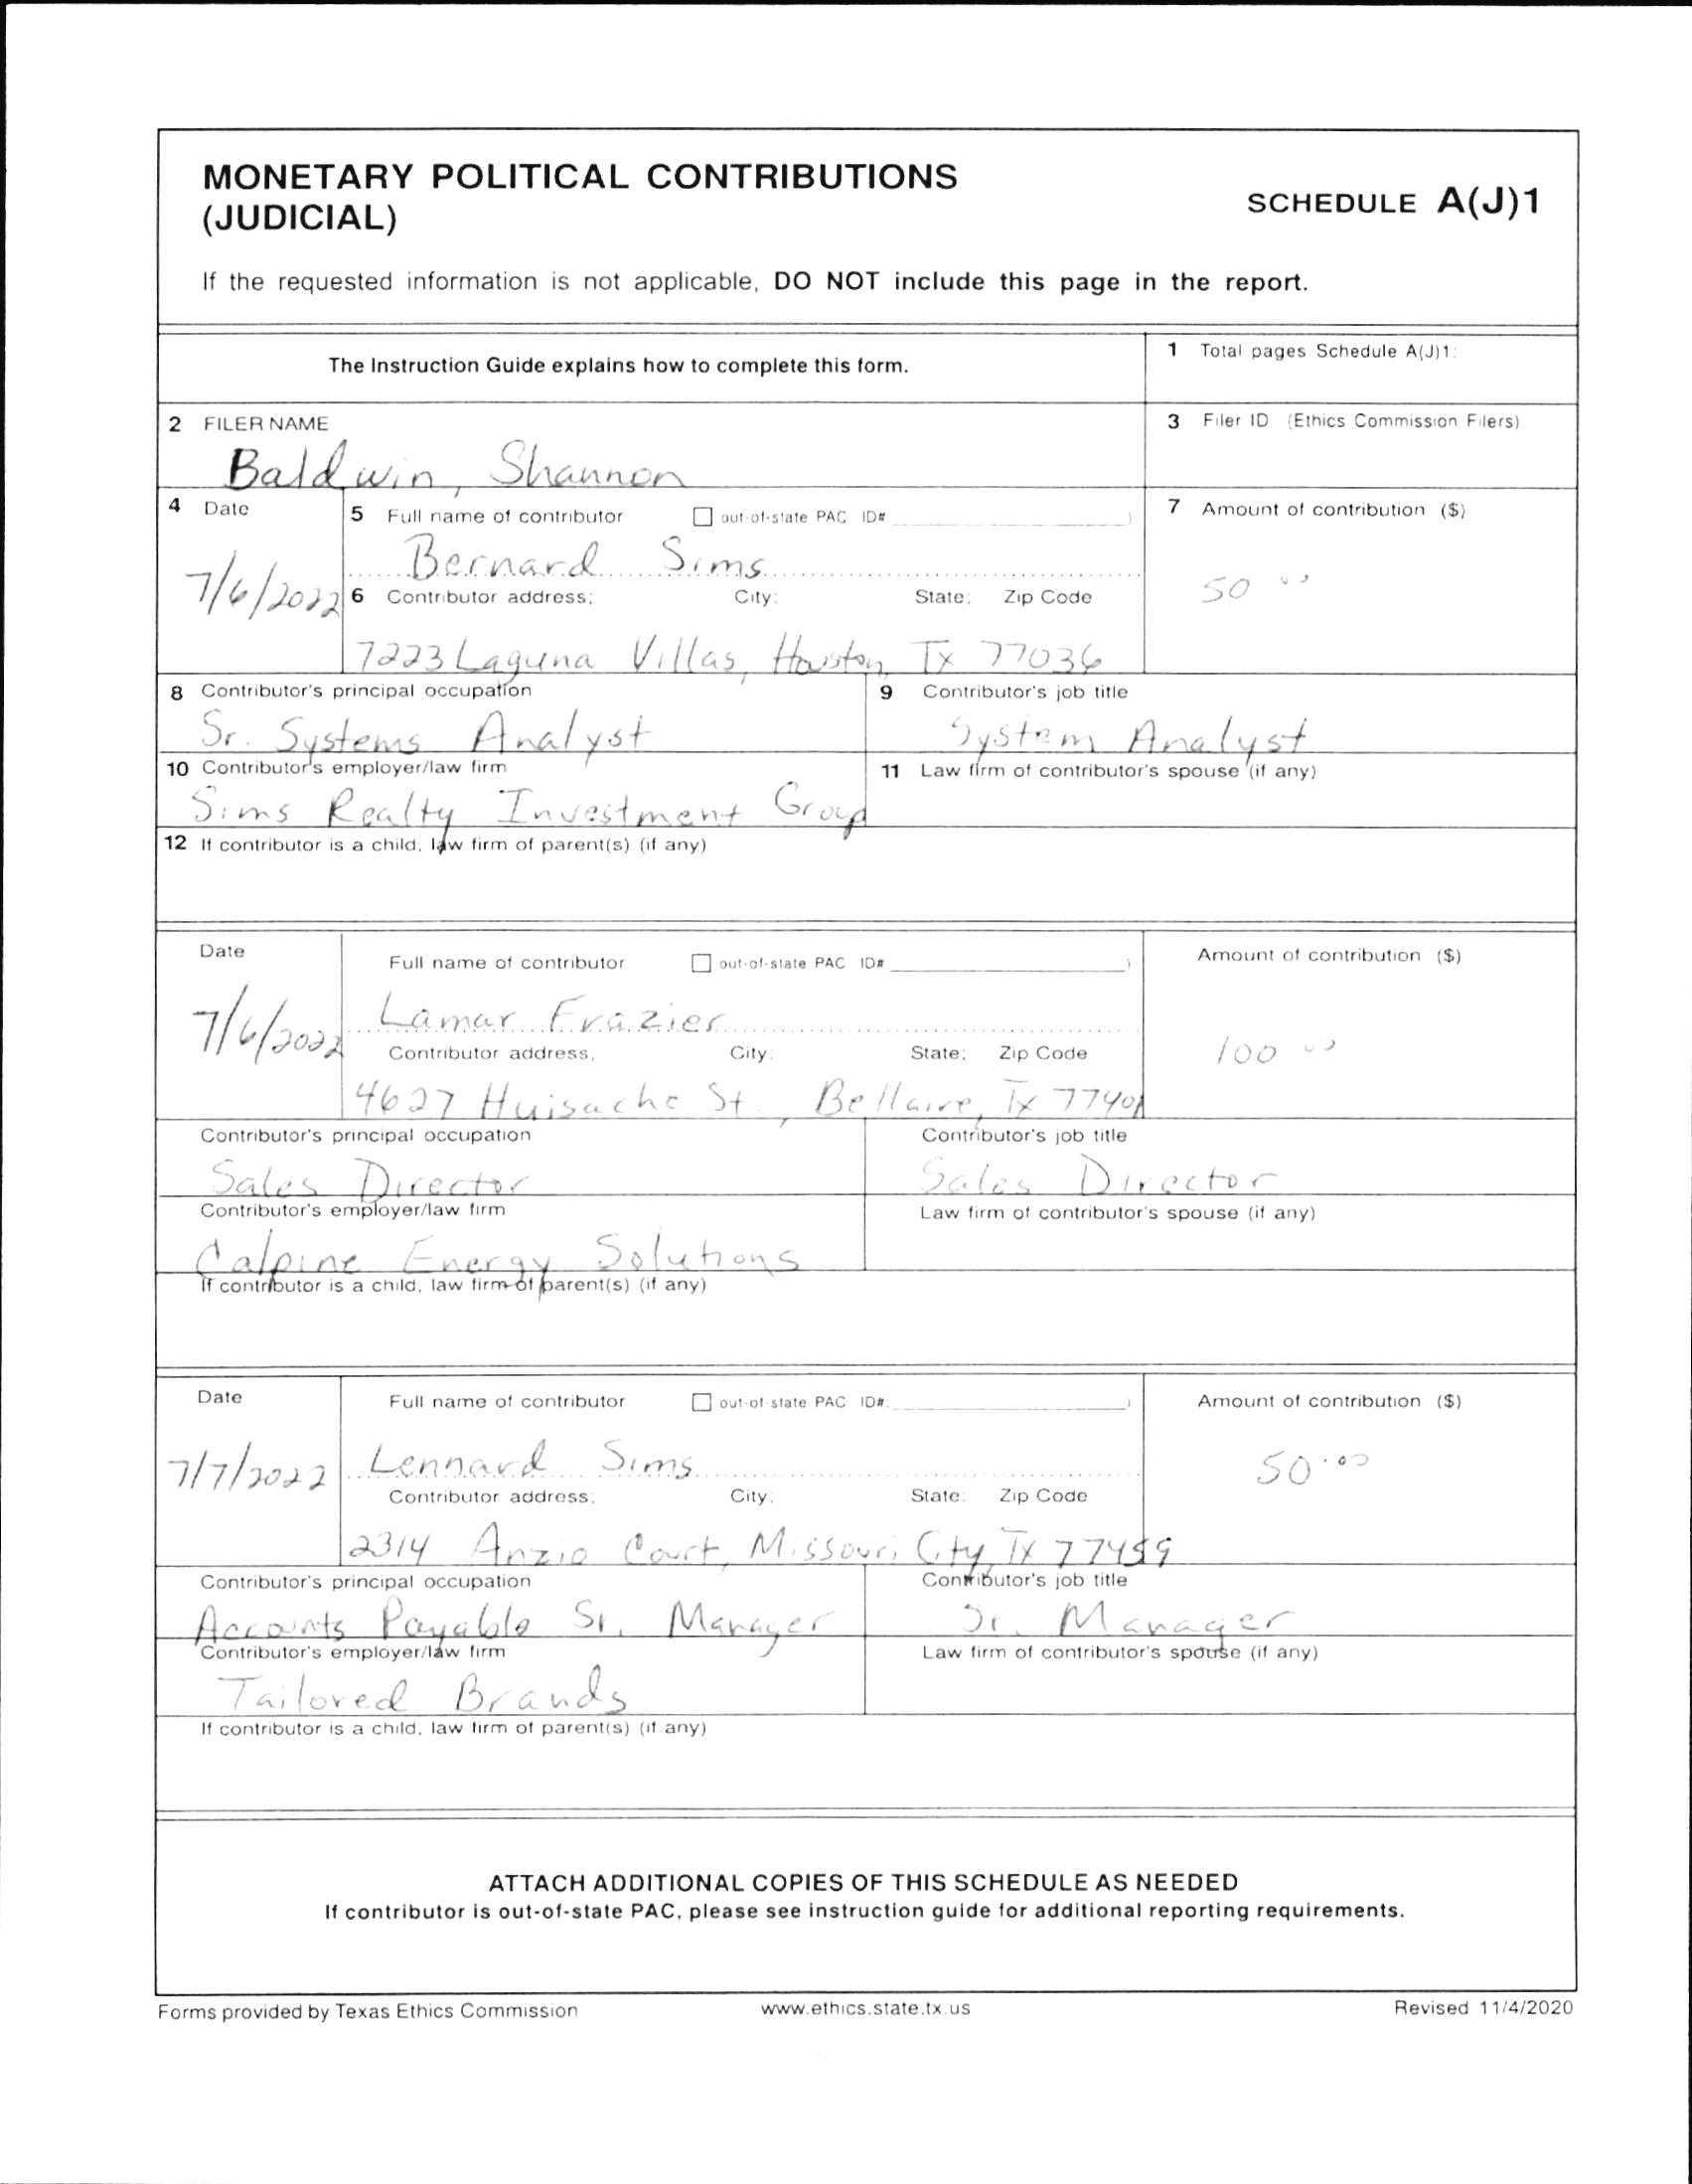 MONETARY POLITICAL CONTRIBUTIONS
(JUDICIAL)
SCHEDULE A(J)1
If the requested information is not applicable, DO NOT include this page in the report.
The Instruction Guide explains how to complete this form.
1 Total pages Schedule A(J)1:
2 FILER NAME
Baldwin, Shannon
3 Filer ID (Ethics Commission Filers)
4 Date
7/6/2022
5 Full name of contributor
out-of-state PAC ID#
Bernard Sims
6 Contributor address; City; State; Zip Code
7223 Laguna Villas, Houston, Tx 77036
7 Amount of contribution ($)
50 00
8 Contributor's principal occupation
Sr. Systems Analyst
9 Contributor's job title
System Analyst
10 Contributor's employer/law firm
Sims Realty Investment Group
11 Law firm of contributor's spouse (if any)
12 If contributor is a child, law firm of parent(s) (if any)
Date
7/6/2022
Full name of contributor
out-of-state PAC ID#
Lamar Frazier
Contributor address; City; State; Zip Code
4627 Huisache St., Bellaire, Tx 77401
Amount of contribution ($)
100 00
Contributor's principal occupation
Sales Director
Contributor's job title
Sales Director
Contributor's employer/law firm
Calpine Energy Solutions
Law firm of contributor's spouse (if any)
If contributor is a child, law firm of parent(s) (if any)
Date
7/7/2022
Full name of contributor
out-of-state PAC ID#:
Lennard Sims
Contributor address; City; State; Zip Code
2314 Anzio Court, Missouri City, Tx 77459
Amount of contribution ($)
50.00
Contributor's principal occupation
Accounts Payable Sr. Manager
Contributor's job title
Sr. Manager
Contributor's employer/law firm
Tailored Brands
Law firm of contributor's spouse (if any)
If contributor is a child, law firm of parent(s) (if any)
ATTACH ADDITIONAL COPIES OF THIS SCHEDULE AS NEEDED
If contributor is out-of-state PAC, please see instruction guide for additional reporting requirements.
Forms provided by Texas Ethics Commission
www.ethics.state.tx.us
Revised 11/4/2020